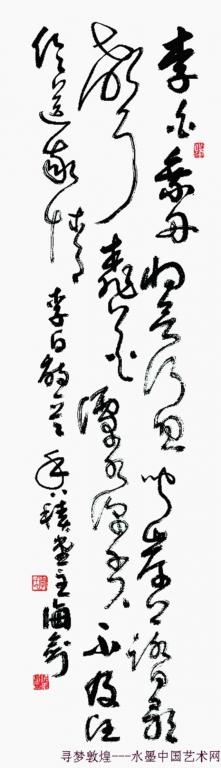 李白乘舟将欲行忽闻岸上踏歌
聲桃花潭水深千尺不及汪
伦送我情 李白詩 主海
寻梦敦煌---水墨中国艺术网